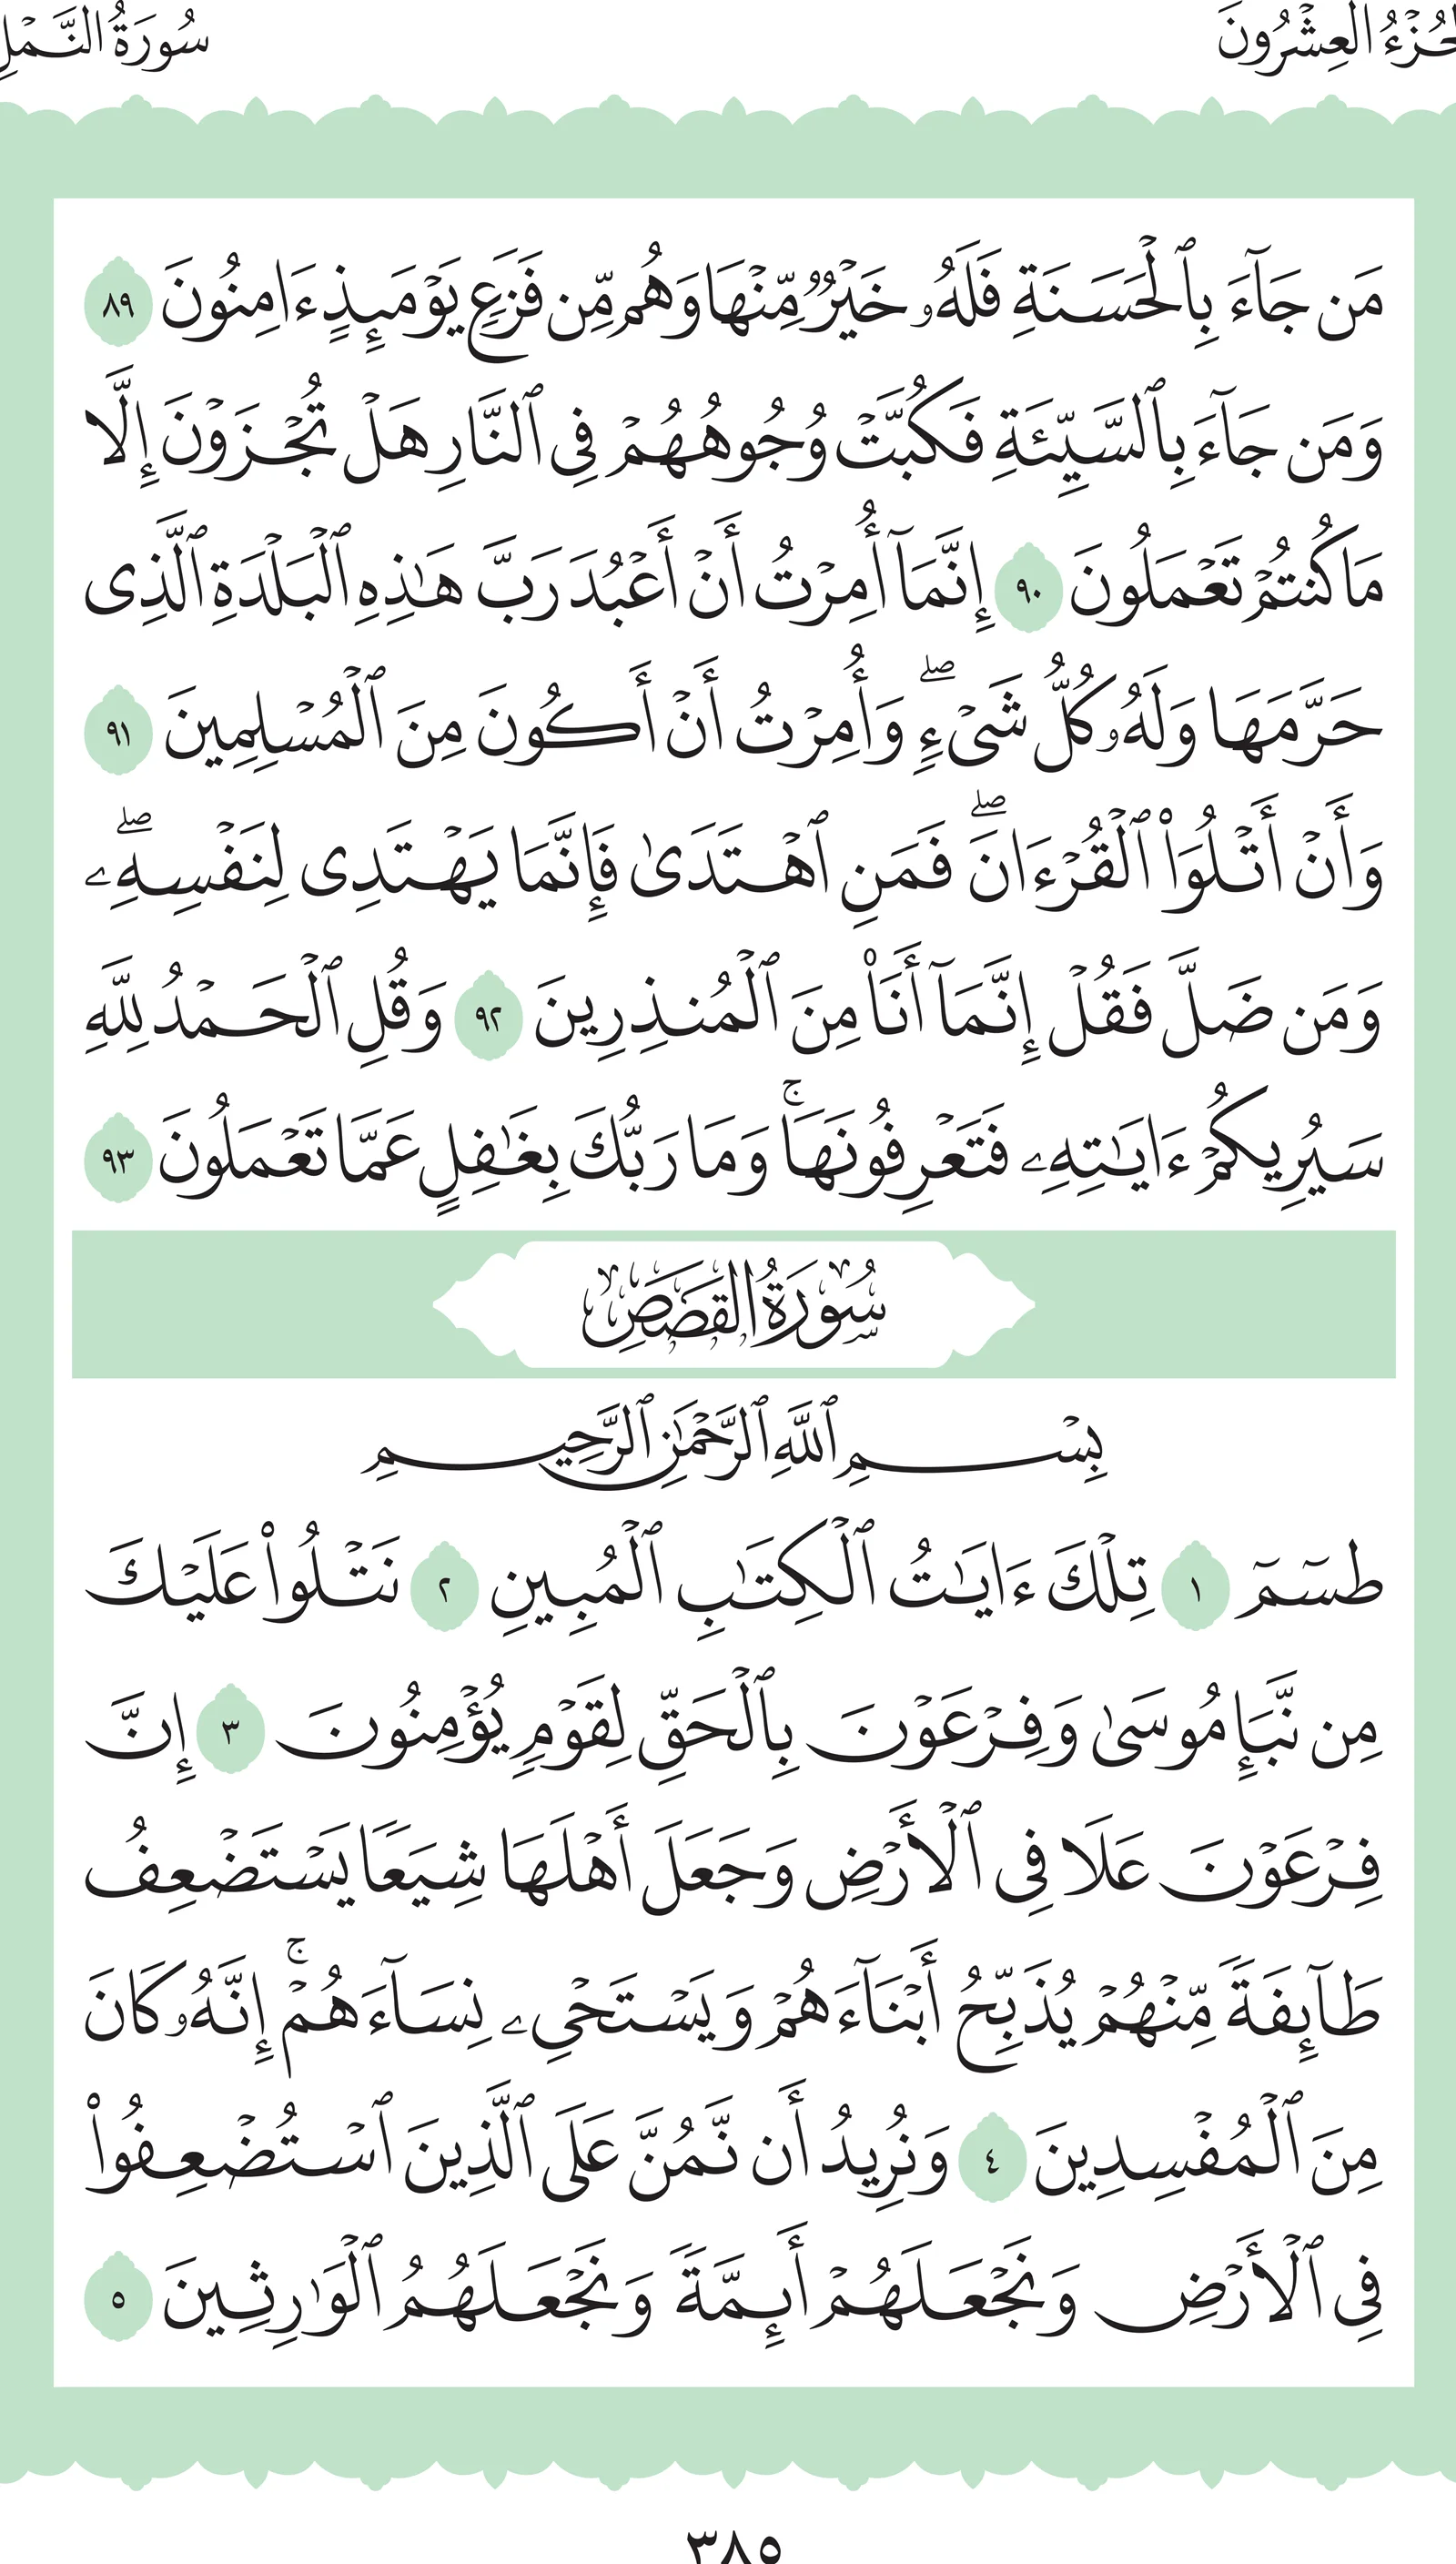 الجُزْءُ العِشْرُونَ
سُورَةُ النَّمْلِ
مَن جَآءَ بِٱلْحَسَنَةِ فَلَهُۥ خَيْرٌۭ مِّنْهَا وَهُم مِّن فَزَعٍۢ يَوْمَئِذٍ ءَامِنُونَ ٨٩
وَمَن جَآءَ بِٱلسَّيِّئَةِ فَكُبَّتْ وُجُوهُهُمْ فِى ٱلنَّارِ هَلْ تُجْزَوْنَ إِلَّا
مَا كُنتُمْ تَعْمَلُونَ ٩٠ إِنَّمَآ أُمِرْتُ أَنْ أَعْبُدَ رَبَّ هَـٰذِهِ ٱلْبَلْدَةِ ٱلَّذِى
حَرَّمَهَا وَلَهُۥ كُلُّ شَىْءٍۢ ۖ وَأُمِرْتُ أَنْ أَكُونَ مِنَ ٱلْمُسْلِمِينَ ٩١
وَأَنْ أَتْلُوَا۟ ٱلْقُرْءَانَ ۖ فَمَنِ ٱهْتَدَىٰ فَإِنَّمَا يَهْتَدِى لِنَفْسِهِۦ ۖ
وَمَن ضَلَّ فَقُلْ إِنَّمَآ أَنَا۠ مِنَ ٱلْمُنذِرِينَ ٩٢ وَقُلِ ٱلْحَمْدُ لِلَّهِ
سَيُرِيكُمْ ءَايَـٰتِهِۦ فَتَعْرِفُونَهَا ۚ وَمَا رَبُّكَ بِغَـٰفِلٍ عَمَّا تَعْمَلُونَ ٩٣
سُورَةُ القَصَصِ
بِسْمِ ٱللَّهِ ٱلرَّحْمَـٰنِ ٱلرَّحِيمِ
طسٓمٓ ١ تِلْكَ ءَايَـٰتُ ٱلْكِتَـٰبِ ٱلْمُبِينِ ٢ نَتْلُوا۟ عَلَيْكَ
مِن نَّبَإِ مُوسَىٰ وَفِرْعَوْنَ بِٱلْحَقِّ لِقَوْمٍۢ يُؤْمِنُونَ ٣ إِنَّ
فِرْعَوْنَ عَلَا فِى ٱلْأَرْضِ وَجَعَلَ أَهْلَهَا شِيَعًۭا يَسْتَضْعِفُ
طَآئِفَةًۭ مِّنْهُمْ يُذَبِّحُ أَبْنَآءَهُمْ وَيَسْتَحْىِۦ نِسَآءَهُمْ ۚ إِنَّهُۥ كَانَ
مِنَ ٱلْمُفْسِدِينَ ٤ وَنُرِيدُ أَن نَّمُنَّ عَلَى ٱلَّذِينَ ٱسْتُضْعِفُوا۟
فِى ٱلْأَرْضِ وَنَجْعَلَهُمْ أَئِمَّةًۭ وَنَجْعَلَهُمُ ٱلْوَٰرِثِينَ ٥
٣٨٥